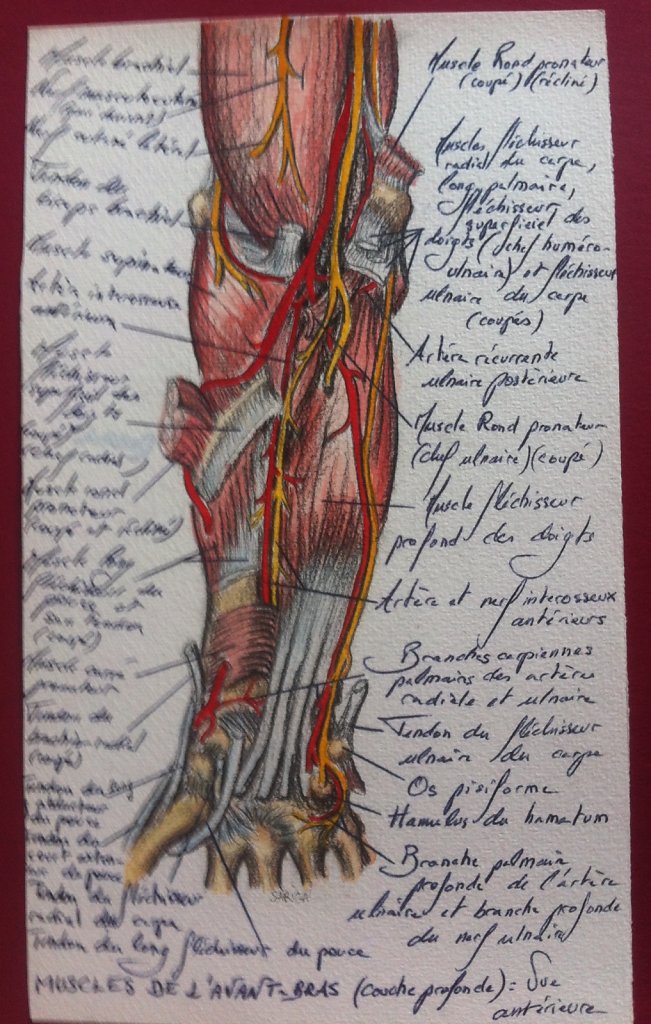 Muscle brachial
Nerf musculocutané
Nerf cutané latéral
Tendon du
biceps brachial
Muscle supinateur
Artère interosseuse
antérieure
Muscle
fléchisseur
superficiel des
doigts
(coupé)
(chef radial)
Muscle rond
pronateur
(coupé et récliné)
Muscle long
fléchisseur du
pouce et
son tendon
(coupé)
Muscle carré
pronateur
Tendon du
brachio-radial
(coupé)
Tendon du long
abducteur
du pouce
Tendon du
court
du pouce
Tendon du fléchisseur
radial du carpe
Tendon du long fléchisseur du pouce
Muscle Rond pronateur
(coupé) (récliné)
Muscles fléchisseur
radial du carpe,
long palmaire,
fléchisseur
superficiel des
doigts (chef huméro-
ulnaire) et fléchisseur
ulnaire du carpe
(coupés)
Artère récurrante
ulnaire postérieure
Muscle Rond pronateur
(chef ulnaire) (coupé)
Muscle fléchisseur
profond des doigts
Artère et nerf interosseux
antérieurs
Branches carpiennes
palmaires des artères
radiale et ulnaire
Tendon du fléchisseur
ulnaire du carpe
Os pisiforme
Hamulus du hamatum
Branche palmaire
profonde de l'artère
ulnaire et branche profonde
du nerf ulnaire
SARICA
MUSCLES DE L'AVANT-BRAS (couche profonde) = Vue
antérieure